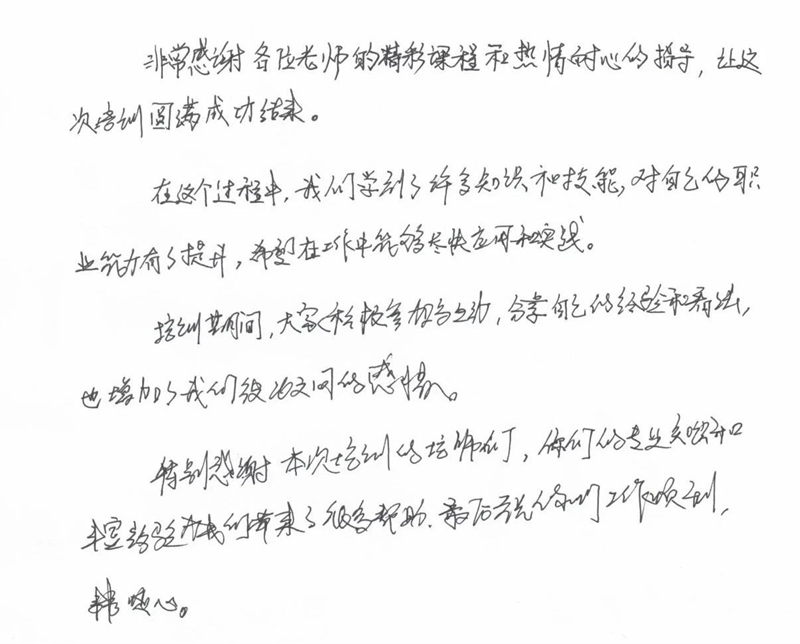 非常感谢各位老师的精彩课程和热情耐心的指导，让这
次培训圆满成功结束。
在这个过程中，我们学到了许多知识和技能，对自己的职
业能力有了提升，希望在工作中能够尽快应用和实践。
培训期间，大家积极参加与互动，分享自己的经验和看法，
也增加了我们彼此之间的感情。
特别感谢本次培训的培师们，你们的专业知识和
丰富经验为我们带来了很多帮助．最后祝你们工作顺利，